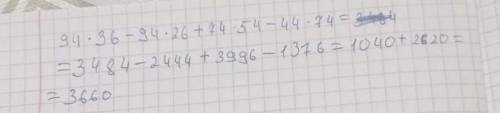 94·36-94·26+74·54-44·74=
=3484-2444+3996-1376=1040+2620=
=3660